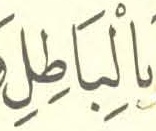 بِالْبَاطِلِ